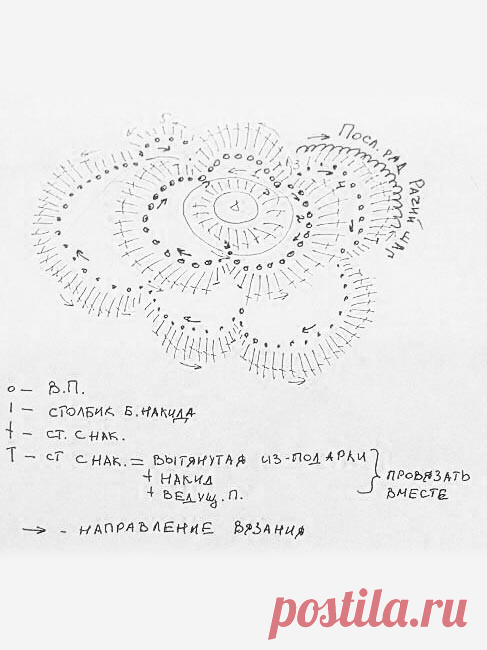 Посл. ряд
РАЧИЙ ШАГ
5
1
3
2
4
о – В.П.
I – СТОЛБИК Б. НАКИДА
† – СТ. С НАК.
Т – СТ С НАК. = ВЫТЯНУТАЯ ИЗ-ПОД АРКИ
+ НАКИД
+ ВЕДУЩ. П.
ПРОВЯЗАТЬ
ВМЕСТЕ
→ - НАПРАВЛЕНИЕ ВЯЗАНИЯ
postila.ru